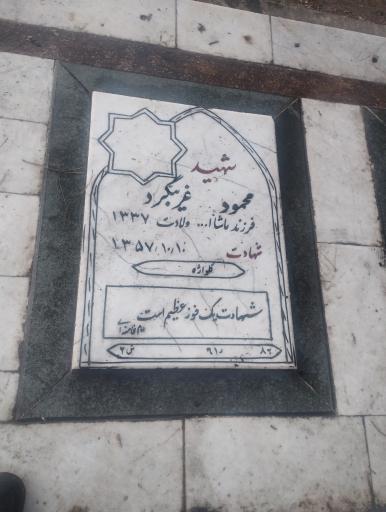 شهید
محمود غربگرد
فرزند ماشاا... ولادت ۱۳۳۷
شهادت ۱۳۵۷/۱۰/۱۰
گلواژه
شهادت یک فوز عظیم است
امام خامنه‌ای
ق ۸۶ ر ۹۱ ش ۲